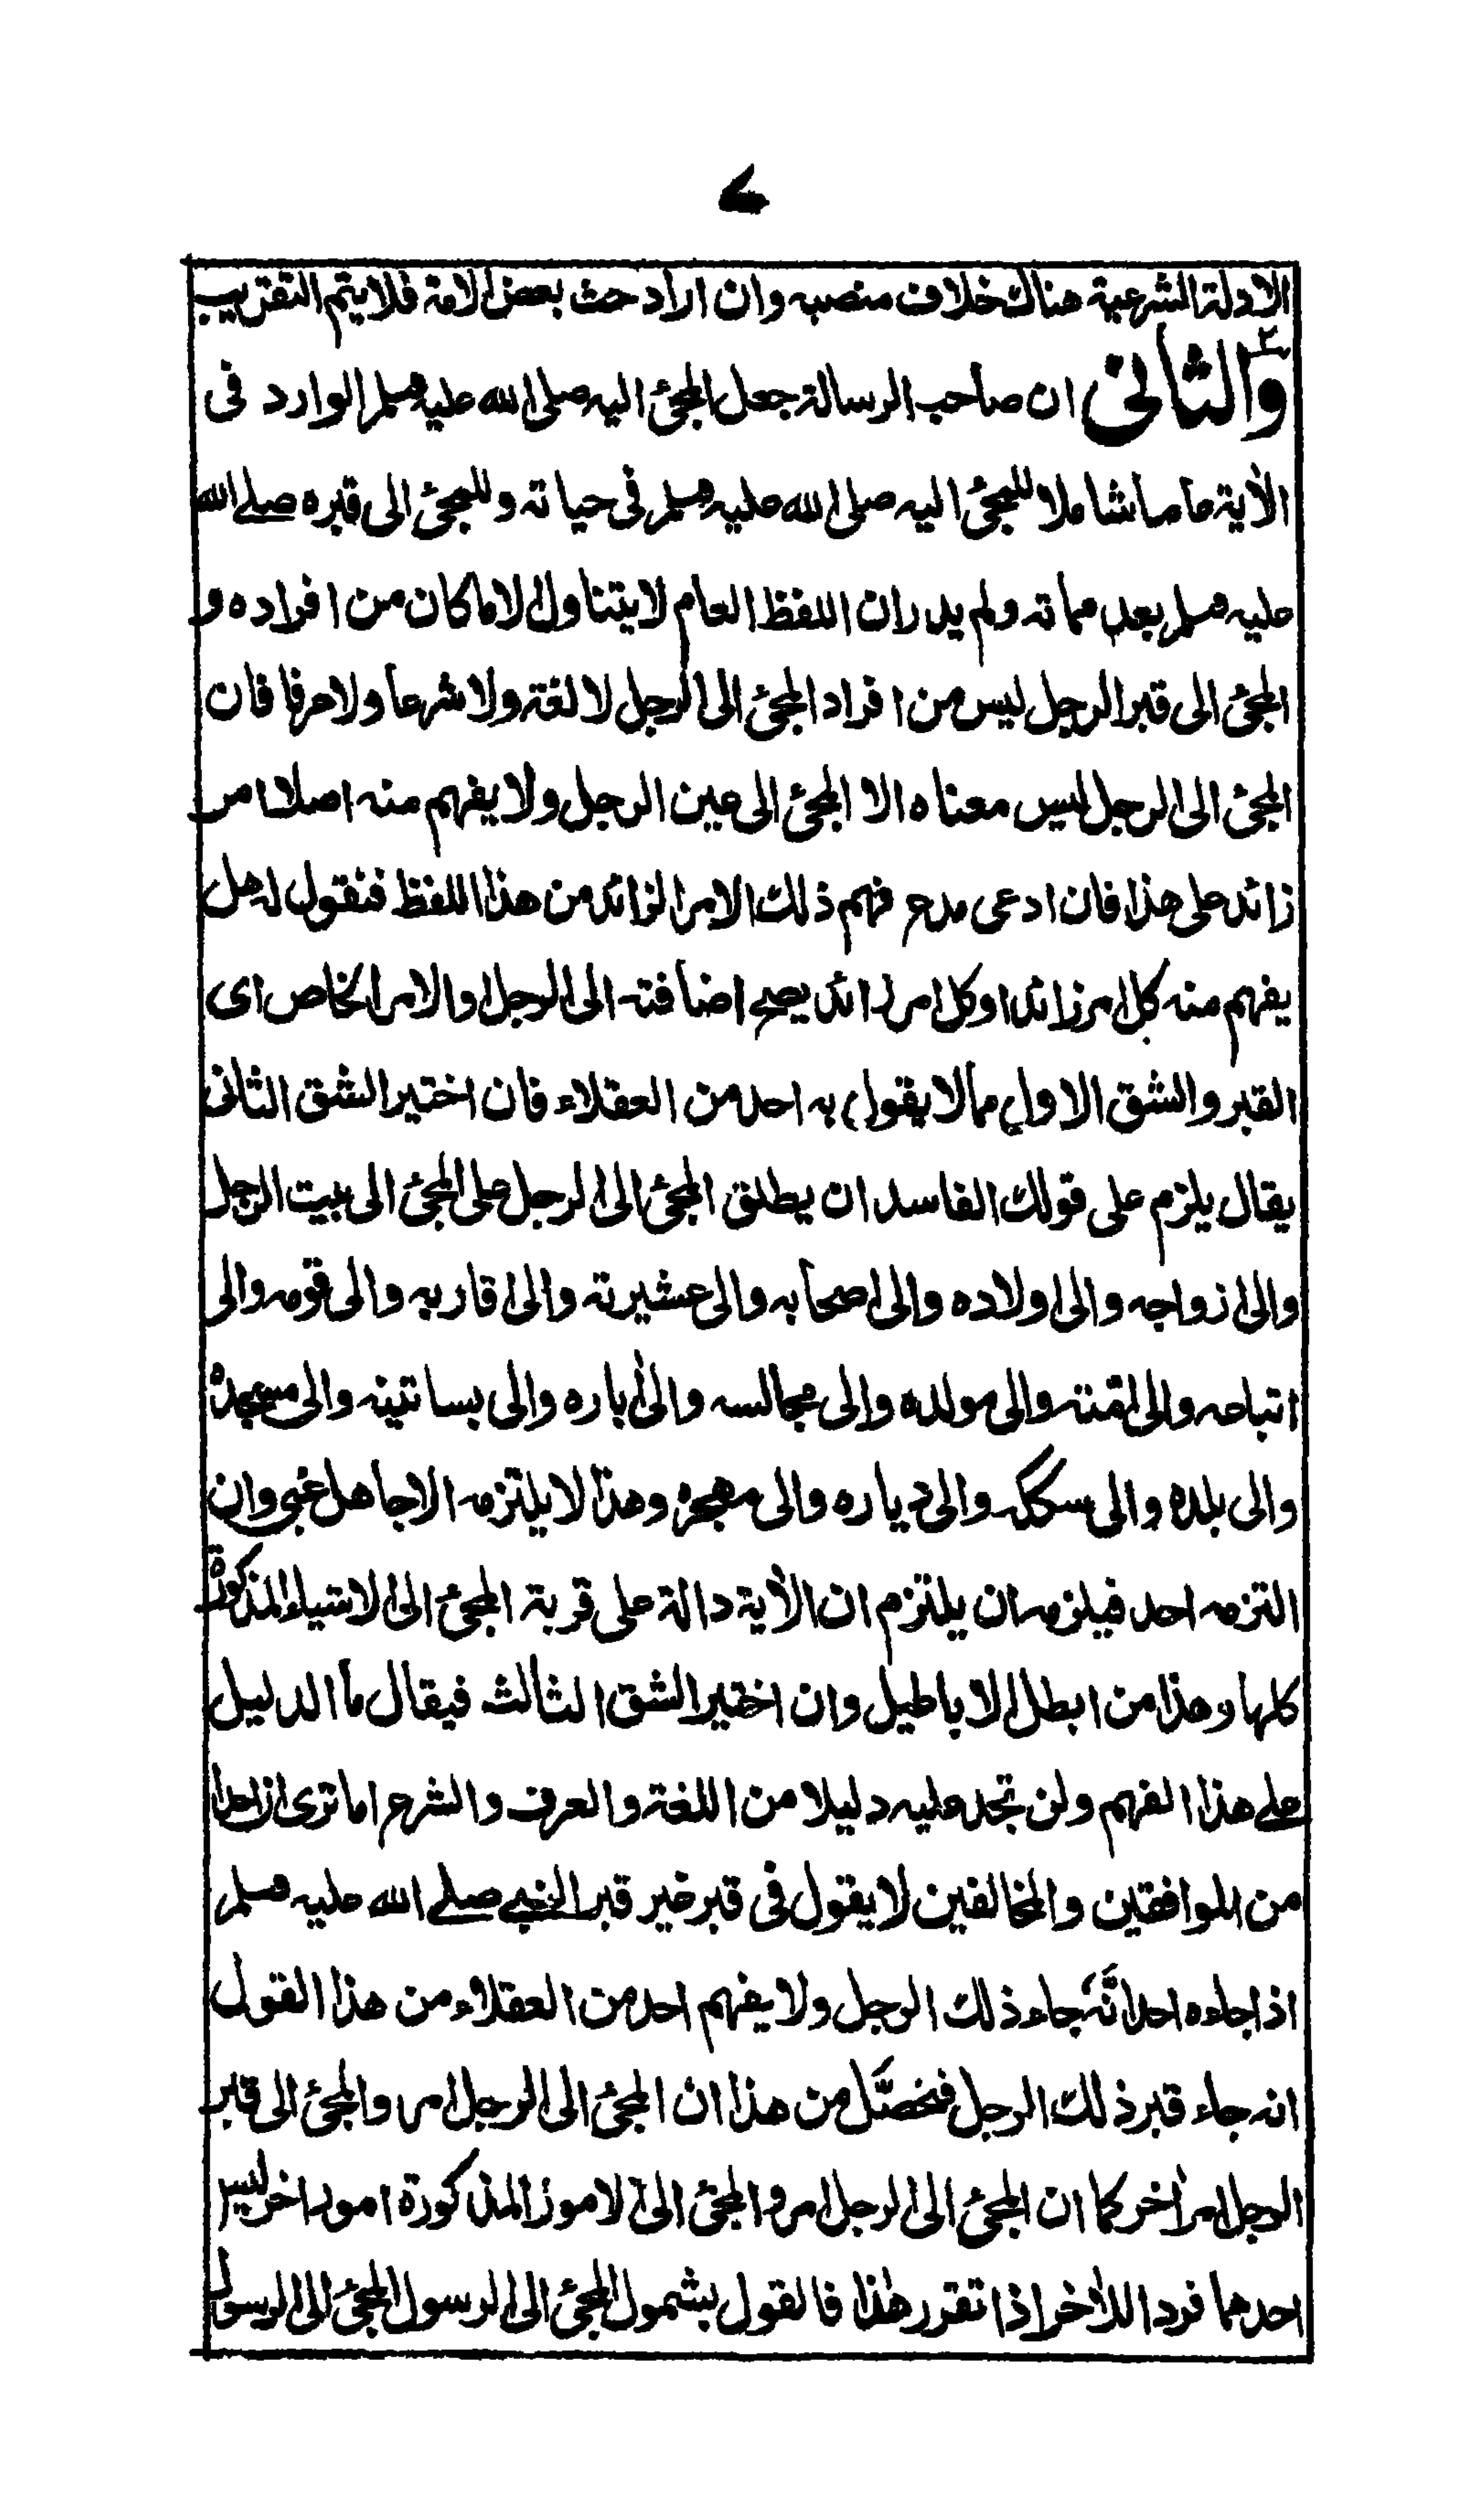 ٧
الادلة الشرعية هناك خلاف منصبه وان اراد حث بعض الامة فلا يتم التقريب
والثانى ان صاحب الرسالة جعل المجئ اليه صلى الله عليه وسلم الوارد فى
الآية عاما شاملا للمجئ اليه صلى الله عليه وسلم فى حياته وللمجئ الى قبره صلے الله
عليه وسلم بعد مماته ولم يدر ان اللفظ العام لا يتناول الا ما كان من افراده و
المجئ الى قبر الرجل ليس من افراد المجئ الى الرجل لا لغة ولا شرعا ولا عرفا فان
المجئ الى الرجل ليس معناه الا المجئ الى عين الرجل ولا يفهم منه اصلا امر
زائد على هذا فان ادعى مدع فهم ذلك الامر الزائد من هذا اللفظ فنقول له هل
يفهم منه كل امر زائد او كل امر زائد يصح اضافته الى الرجل او الامر الخاص اى
القبر والشق الاول مما لا يقول به احد من العقلاء فان اختير الشق الثانى
يقال يلزم على قولك الفاسد ان يطلق المجئ الى الرجل على المجئ الى بيت الرجل
والى ازواجه والى اولاده والى اصحابه والى عشيرته والى اقاربه والى قومه والى
اتباعه والى امته والى مولده والى مجالسه والى آباره والى بساتينه والى مسجده
والى بلده والى سككه والى دياره والى مهجره وهذا لا يلتزمه الا جاهل غبى وان
التزمه احد فيلزمه ان يلتزم ان الآية دالة على قربة المجئ الى الاشياء المذكورة
كلها وهذا من ابطل الاباطيل وان اختير الشق الثالث فيقال ما الدليل
علے هذا الفهم ولن تجد عليه دليلا من اللغة والعرف والشرع اما ترى ان احدا
من الموافقين والمخالفين لا يقول فى قبر غير قبر النبے صلے الله عليه وسلم
اذا جاءه احد انّه جاء ذلك الرجل ولا يفهم احد من العقلاء من هذا القول
انه جاء قبر ذلك الرجل فتحصّل من هذا ان المجئ الى الرجل امر والمجئ الى قبر
الرجل امر آخر كما ان المجئ الى الرجل امر والمجئ الى الامور المذكورة امور اخر ليس
احدهما فردا للآخر اذا تقرر هذا فالقول بشمول المجئ الى الرسول المجئ الى الرسول